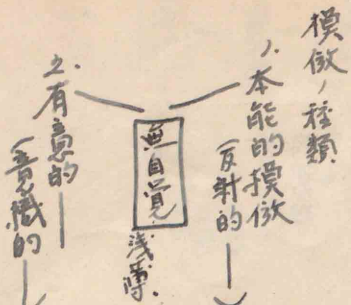 模倣ノ種類
1. 本能的模倣
(反射的
無自覚
浅薄.
2. 有意的
(意識的